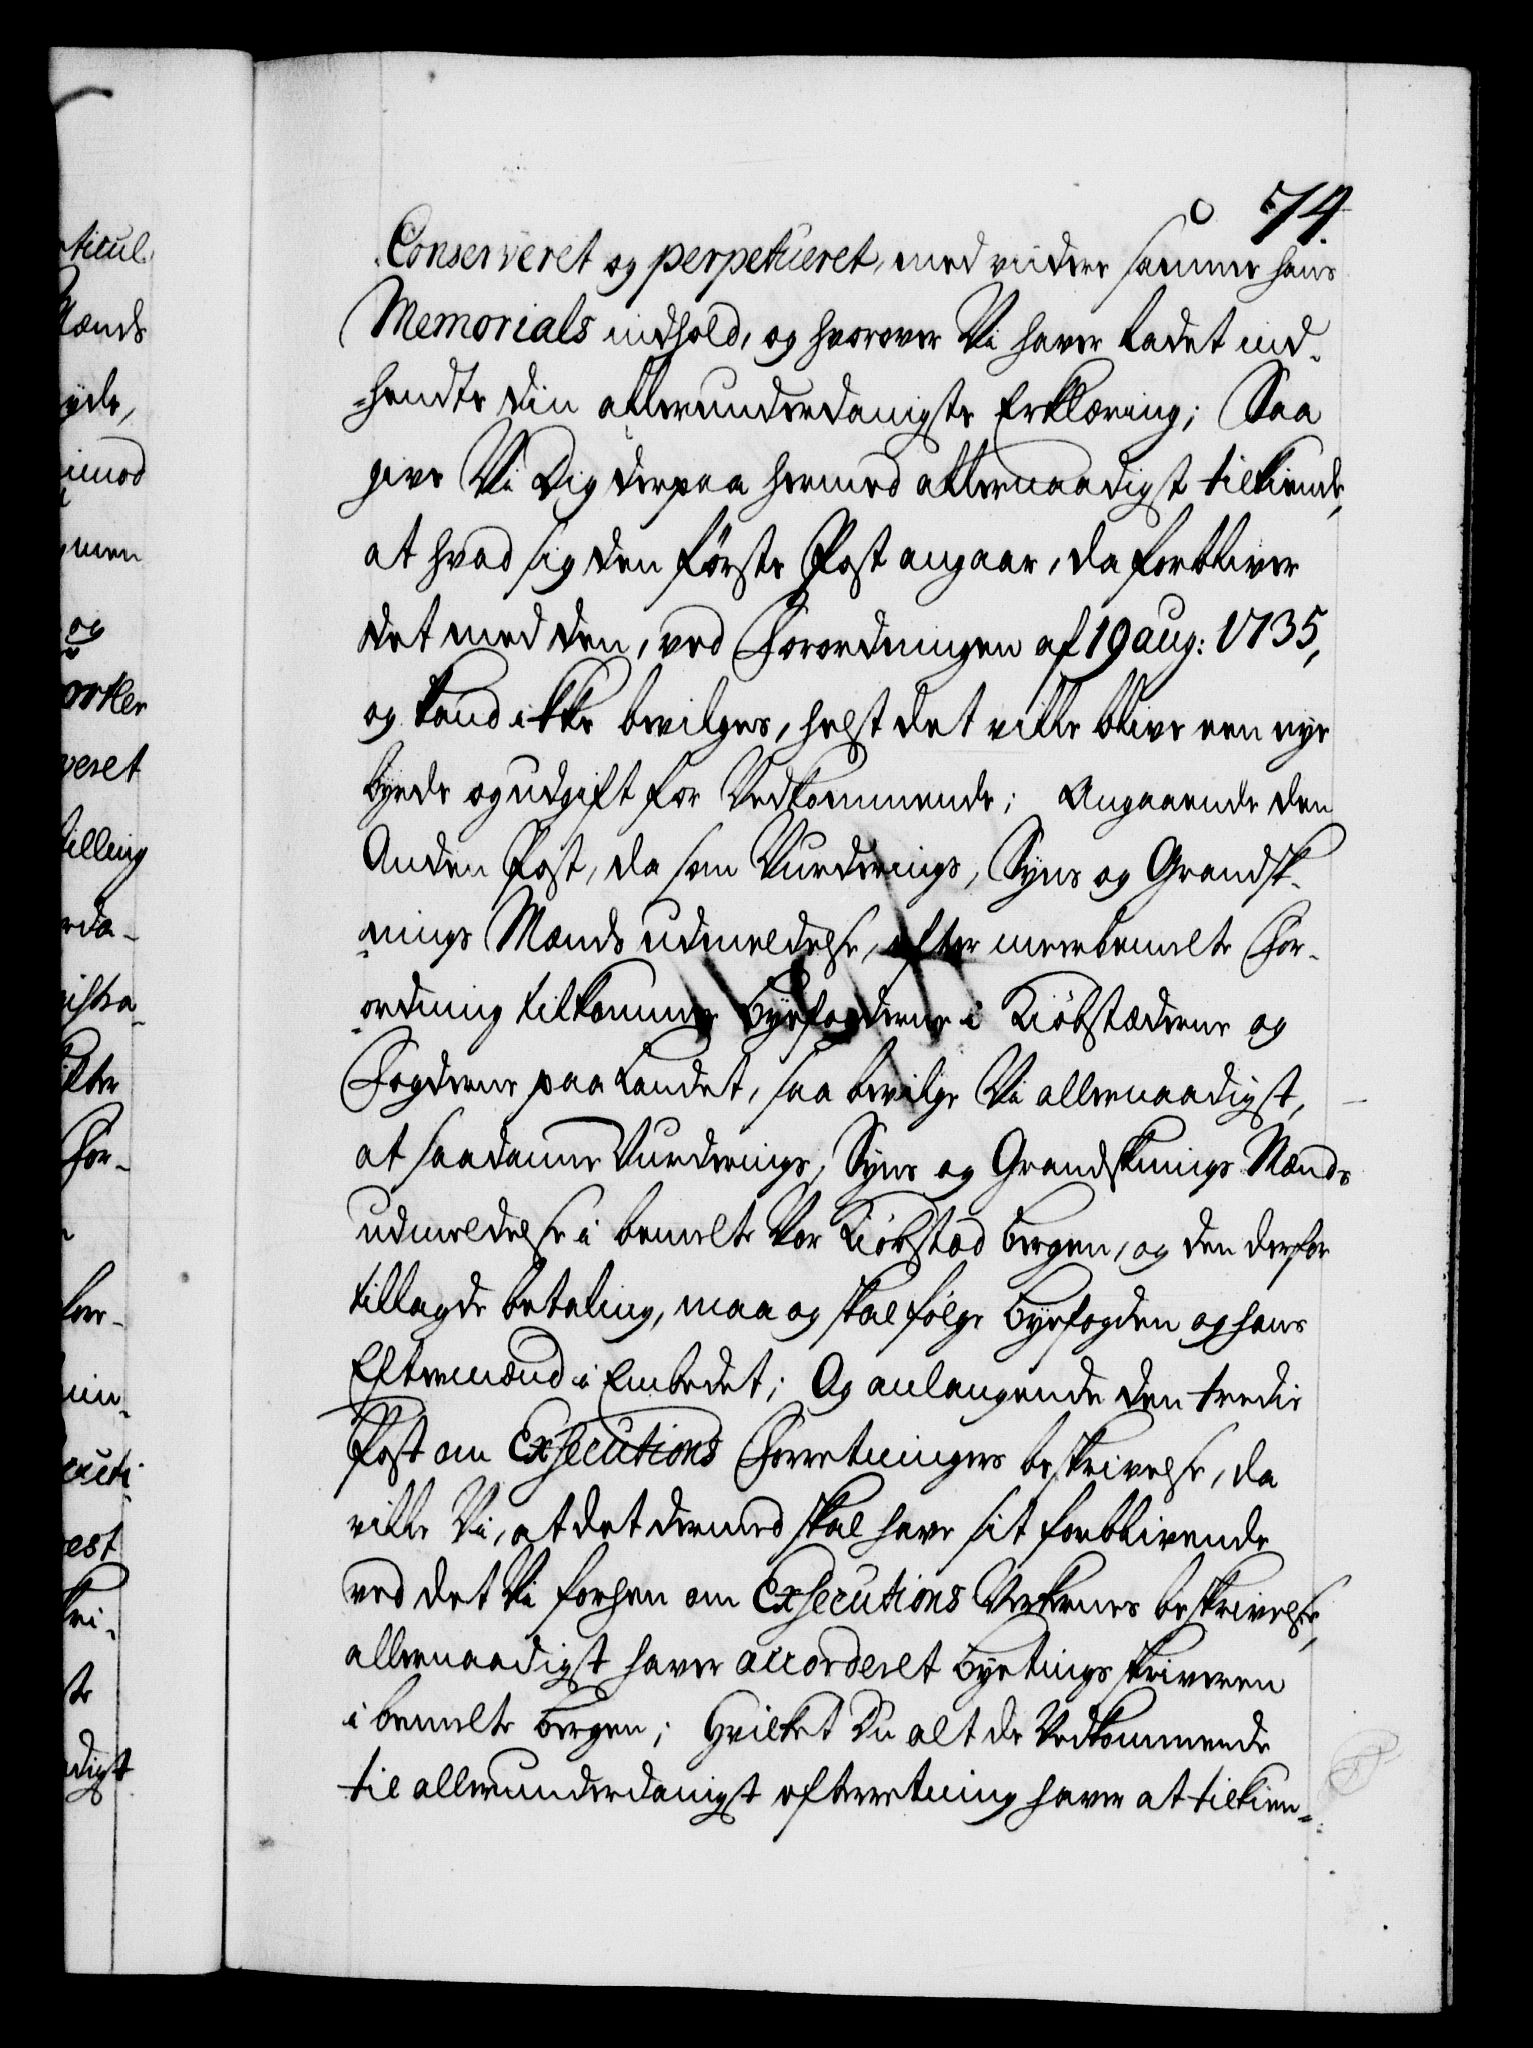 74.
Conserveret og perpetueret, med videre samme hans
Memorials indhold, og hvorover Vi haver ladet ind-
-hendte din allerunderdanigste Erklæring; Saa
give Vi Dig derpaa hermed allernaadigst tilkiende,
at hvad sig den første Post angaar, da forbliver
det med den, ved Forordningen af 19 aug: 1735,
og kand ikke bevilges, helst det ville blive een nye
byrde og udgift for Vedkommende; Angaaende den
Anden Post, da som Vurderings, Syns og Grandsk-
-nings Mænds udmeldelse, efter meerbemelte For-
-ordning tilkommer Byefogderne i Kiøbstæderne og
Fogderne paa Landet, saa bevilge Vi allernaadigst,
at saadanne Vurderings, Syns og Grandsknings Mænds
udmeldelse i bemelte Vor Kiøbstad Bergen, og den derfor
tillagde betaling, maa og skal følge Byefogden og hans
Eftermænd i Embedet; Og anlangende den tredie
Post om Exsecutions Forretningers beskrivelse, da
ville Vi, at det dermed skal have sit forblivende
ved det Vi forhen om Exsecutions Verkernes beskrivelse,
allernaadigst haver accorderet Byetingsskriveren
i bemelte Bergen; Hvilket Du alt de Vedkommende
til allerunderdanigst efterretning haver at tilkien-
ticul.
Mænds
imod
men
og
veret
illing
For-
est
digst